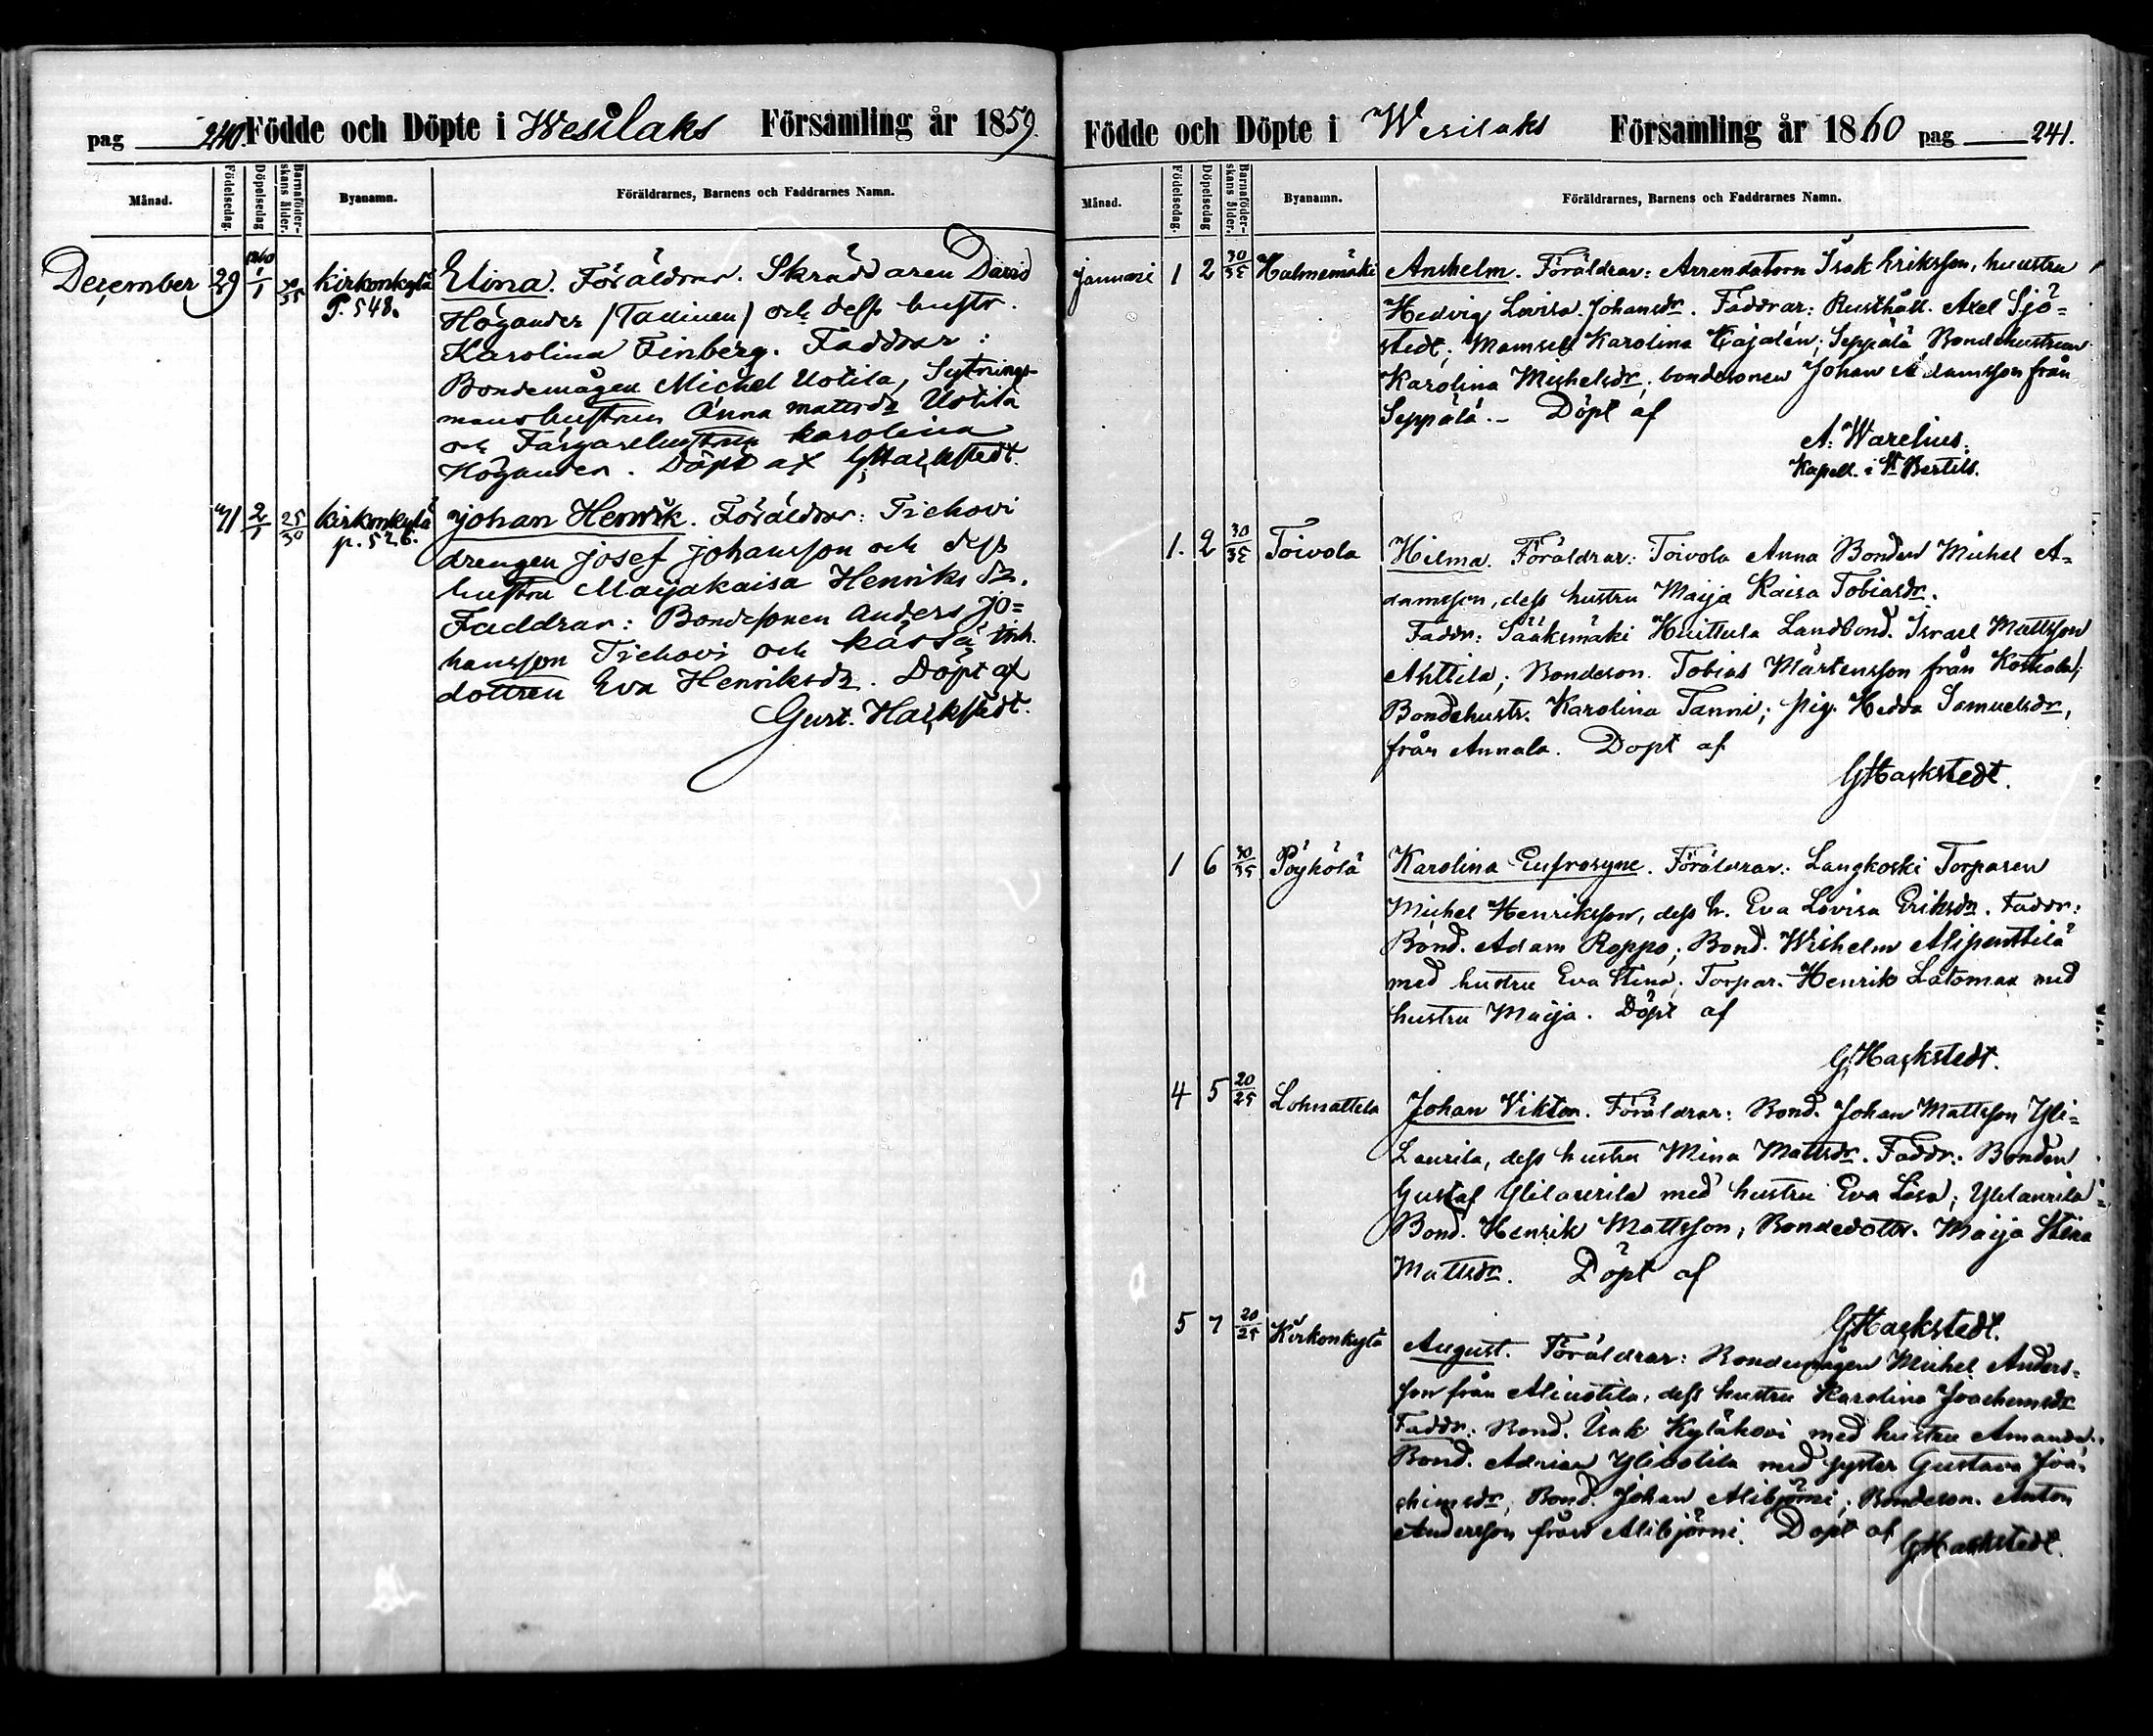 pag 240. Födde och Döpte i Wesilaks Församling år 1859.
Månad. Födelsedag. Döpelsedag Barnaföderskans ålder. Byanamn. Föräldrarnes, Barnens och Faddrarnes Namn.
December 29 1860 1/1 30/35 Kirkonkylä Elina. Föräldrar. Skräddaren David
P. 548. Högander (Taninen) och dess hustr.
Karolina Finberg. Faddrar:
Bondemågen Michel Uotila, Sytnings-
manshustrun Anna Mattsdr Uotila
och Färgarehustrun Karolina
Högander. Döpt af G Hackstedt.
31 2/1 25/30 Kirkonkylä Johan Henrik. Föräldrar: Tichovi
p. 526. drengen Josef Johansson och dess
hustru Maijakaisa Henriksdr.
Faddrar: Bondesonen Anders Jo=
hansson Tichovi och Kässä inh.
dottren Eva Henriksdr. Döpt af
Gust. Hackstedt.
Födde och Döpte i Wesilaks Församling år 1860 pag 241.
Månad. Födelsedag. Döpelsedag Barnaföderskans ålder. Byanamn. Föräldrarnes, Barnens och Faddrarnes Namn.
Januari 1 2 30/35 Halmemäki Anshelm. Föräldrar: Arrendatorn Isak Eriksson, hustru
Hedvig Lovisa Johansdr. Faddrar: Rusthåll. Axel Sjö=
stedt; Mamsell Karolina Cajalén; Seppälä Bondehustrun
Karolina Michelsdr; bondesonen Johan Adamsson från
Seppälä. - Döpt af
A. Warelius.
Kapell. i St Bertils.
1. 2 30/35 Toivola Hilma. Föräldrar: Toivola Anna Bonden Michel A=
damsson, dess hustru Maija Kaisa Tobiasdr.
Faddr: Sääksmäki Huittula Landbond. Israel Mattsson
Anttila; Bondeson. Tobias Mårtensson från Kostiala;
Bondehustr. Karolina Tanni; pig. Hedda Samuelsdr,
från Annala. Döpt af
G Hackstedt.
1 6 30/35 Pöyhölä Karolina Eufrosyne. Föräldrar: Langkoski Torparen
Michel Henriksson, dess h. Eva Lovisa Eriksdr. Faddr:
Bond. Adam Roppo; Bond. Wilhelm Alipenttilä
med hustru Eva Stina; Torpar. Henrik Latomaa med
hustru Maija. Döpt af
G Hackstedt.
4 5 20/25 Lohnattila Johan Viktor. Föräldrar: Bond. Johan Mattsson Yli=
Laurila, dess hustru Mina Mattsdr. Faddr: Bonden
Gustaf Ylilaurila med hustru Eva Lesa; Ylilaurila
Bond. Henrik Mattsson; Bondedottr. Maija Stina
Mattsdr. Döpt af
G Hackstedt.
5 7 20/25 Kirkonkylä August. Föräldrar: Bondemågen Michel Anders=
son från Aliuotila, dess hustru Karolina Joachimsdr
Faddr: Bond. Isak Kylähovi med hustru Amanda;
Bond. Adrian Yliuotila med syster Gustava Joa=
chimsdr, Bond. Johan Alibjörni; Bondeson. Anton
Andersson från Alibjörni. Döpt af G Hackstedt.